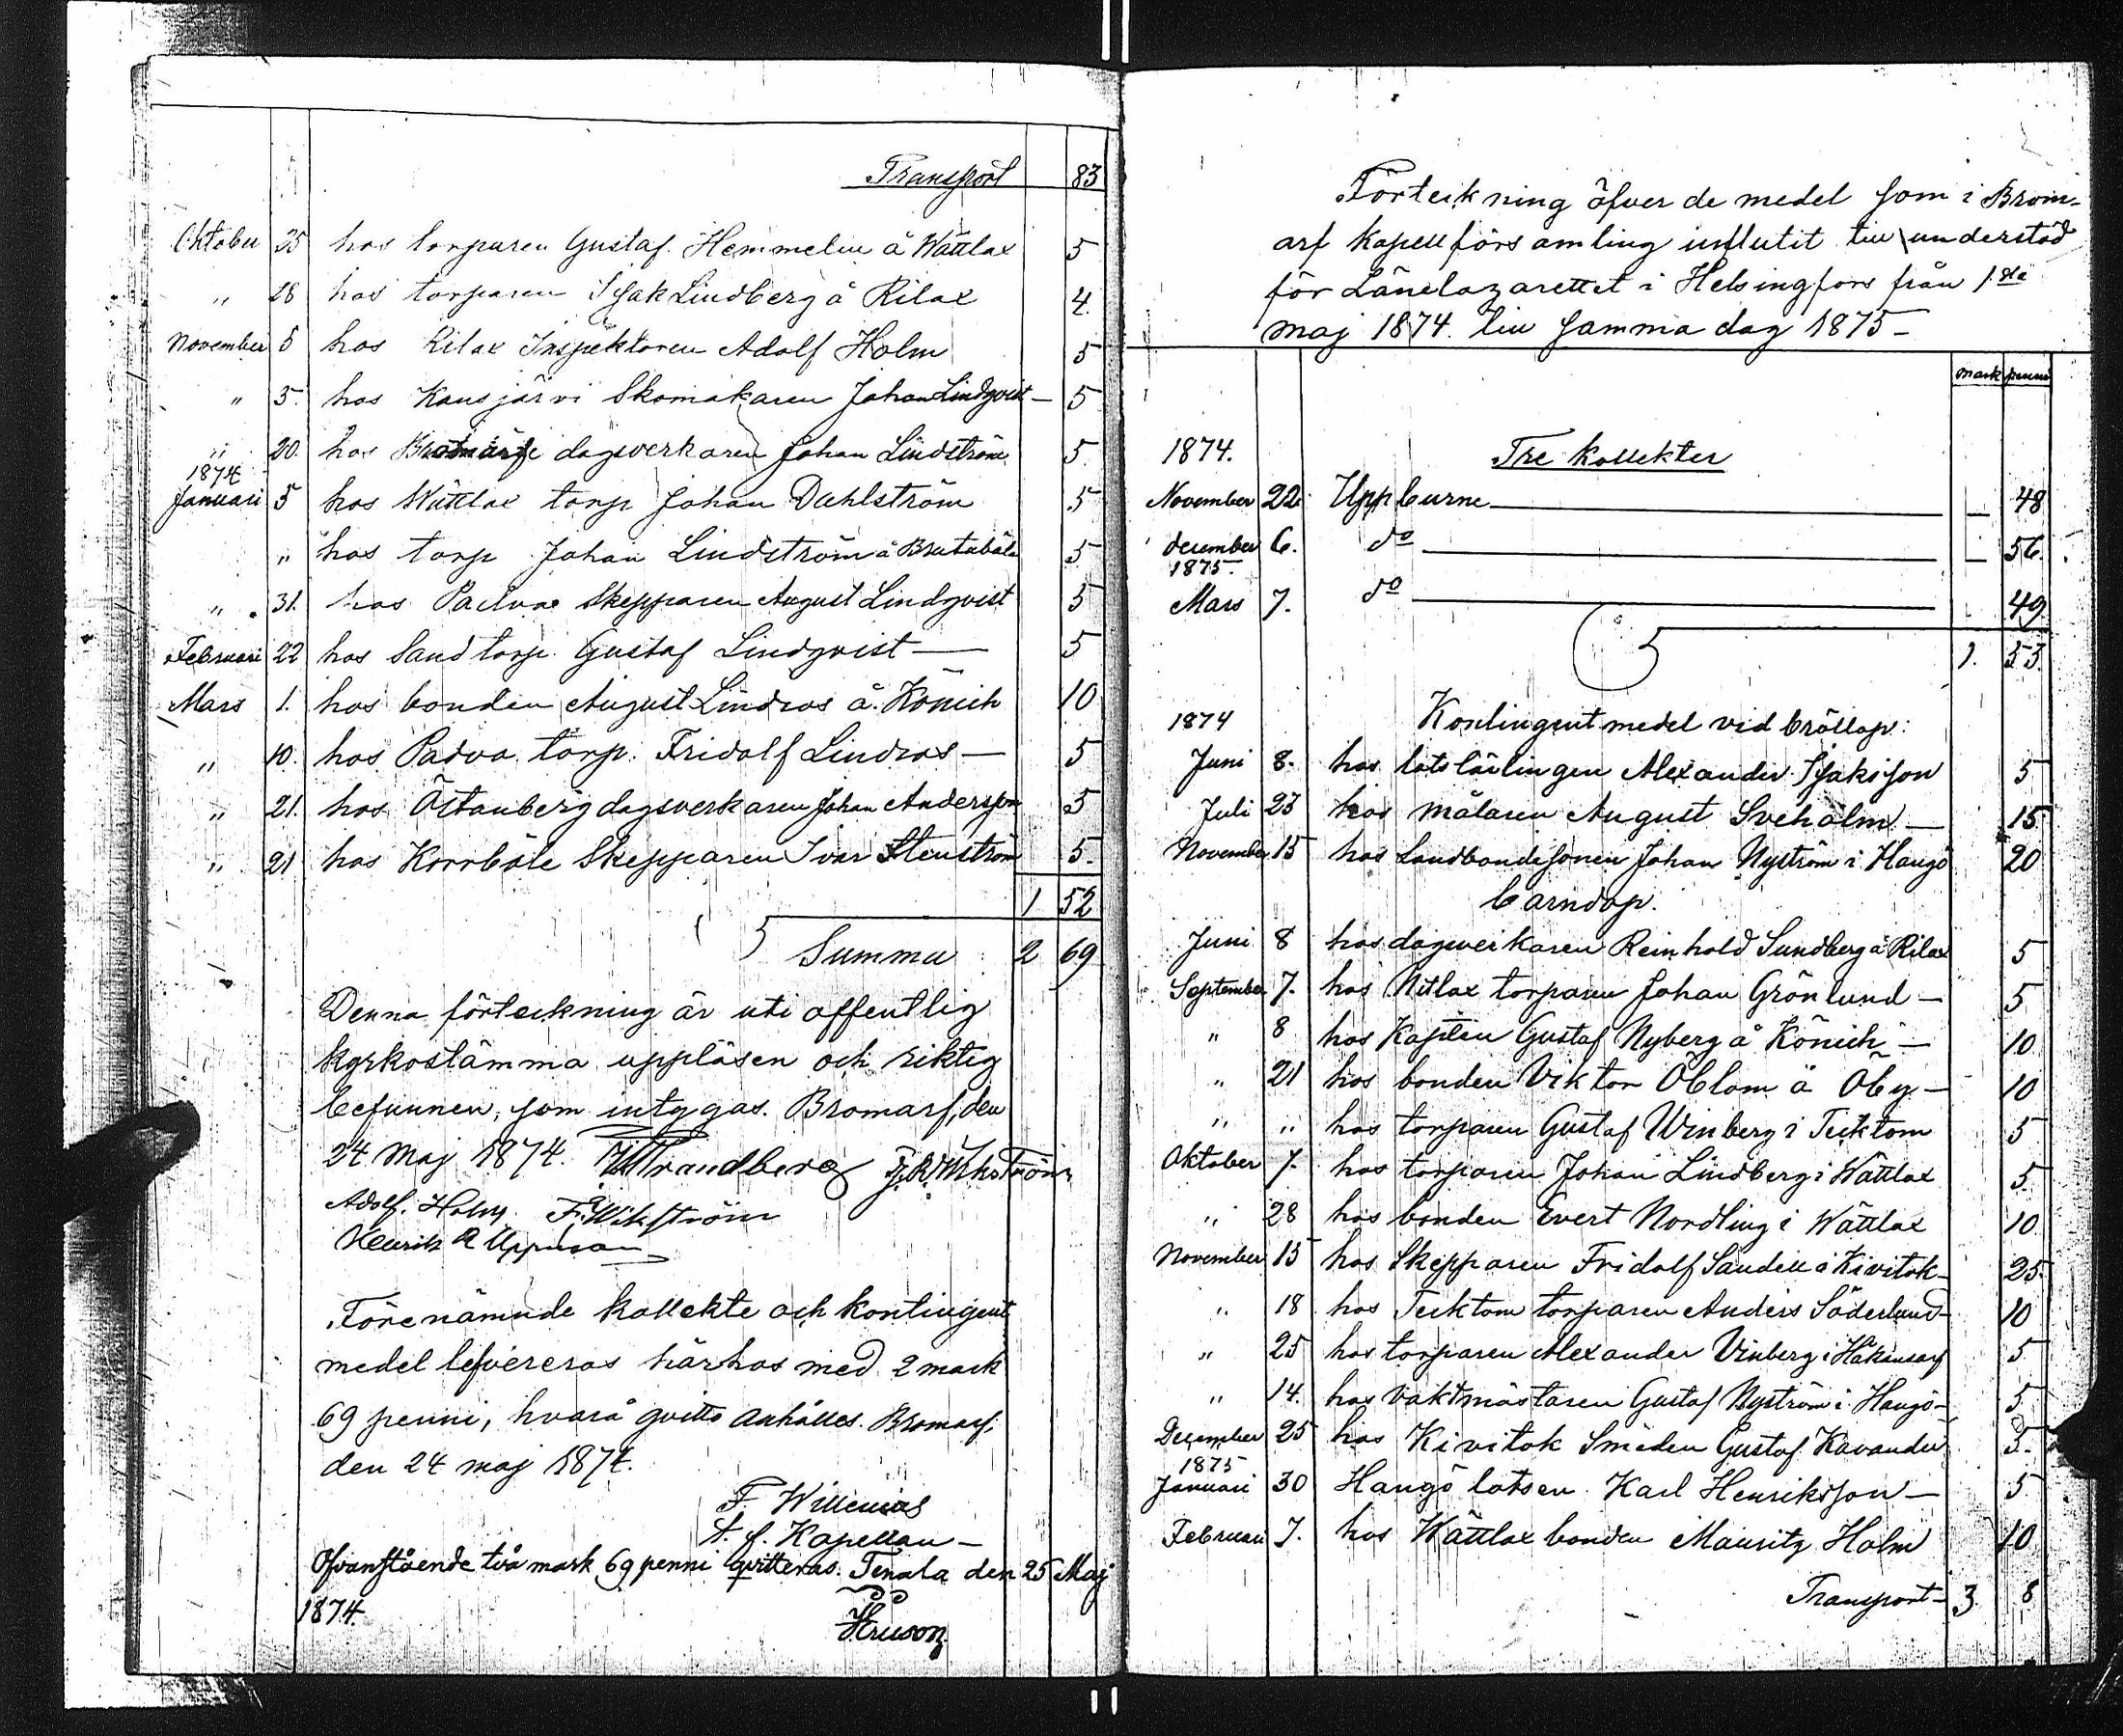 Transport 83
Oktober 25 hos torparen Gustaf Hemmelin å Wättlax 5
„ 28 hos torparen Isak Lindberg å Rilax 4.
November 5 hos Rilax Inspektoren Adolf Holm 5
„ 5. hos Kansjärvi Skomakaren Johan Lindqvist — 5
„ 20. hos Bromarf dagsverkaren Johan Lindström 5.
1874
Januari 5 hos Wättlax torp Johan Dahlström 5
„ hos torp Johan Lindström å 5
„ 31. hos Padva Skepparen August Lindqvist 5
Februari 22 hos Sand torp. Gustaf Lindqvist — 5
Mars 1. hos bonden August Lindros å Könich 10
„ 10. hos Padva torp. Fridolf Lindros — 5
„ 21. hos Östanberg dagsverkaren Johan Andersson 5
„ 21 hos Korrböle Skepparen Ivar Stenström 5.
1 52
Summa 2 69
Denna förteckning är uti offentlig
kyrkostämma uppläsen och riktig
befunnen, som intygas. Bromarf, den
24 Maj 1874. Strandberg
Adolf. Holm F. Wikström
Henrik
Förenämnde kollekte och kontingent
medel lefvereras härhos med 2 mark
69 penni, hvarå qvitto anhålles. Bromarf.
den 24 maj 1874.
F. Willenius
t. f. Kapellan —
Ofvanstående två mark 69 penni qvitteras. Tenala den 25 Maj
1874.
Förteckning öfver de medel som i Brom-
arf Kapellförsamling influtit till understöd
för Länelazarettet i Helsingfors från 1sta
maj 1874. till samma dag 1875 —
mark penni
1874. Tre kollekter
November 22. Uppburne — 48
december 6. do — 56.
1875.
Mars 7. do — 49
1. 53.
1874 Kontingent medel vid bröllop:
Juni 8. hos lotslärlingen Alexander Isaksson 5
Juli 23 hos målaren August Sveholm — 15
November 15 hos Landbondesonen Johan Nyström i Hangö 20
barndop.
Juni 8 hos dagsverkaren Reinhold Sundberg å Rilax 5
September 7. hos Nitlax torparen Johan Grönlund — 5
„ 8 hos Kapten Gustaf Nyberg å Könich — 10
„ 21 hos bonden Viktor Öblom å Öby — 10
„ „ hos torparen Gustaf Winberg i Tecktom 5
Oktober 7. hos torparen Johan Lindberg i Wättlax 5
„ 28 hos bonden Evert Nordling i Wättlax 10
November 15 hos Skepparen Fridolf Sandell å Kivitok — 25.
„ 18 hos Tecktom torparen Anders Söderlund — 10
„ 25 hos torparen Alexander Vinberg i Håkansarf 5
„ 14. hos vaktmästaren Gustaf Nyström i Hangö — 5
December 25 hos Kivitok Smeden Gustaf Kavander 5.
1875
Januari 30 Hangö lotsen Karl Henriksson — 5
Februari 7. hos Wättlax bonden Mauritz Holm 10
Transport — 3. 8